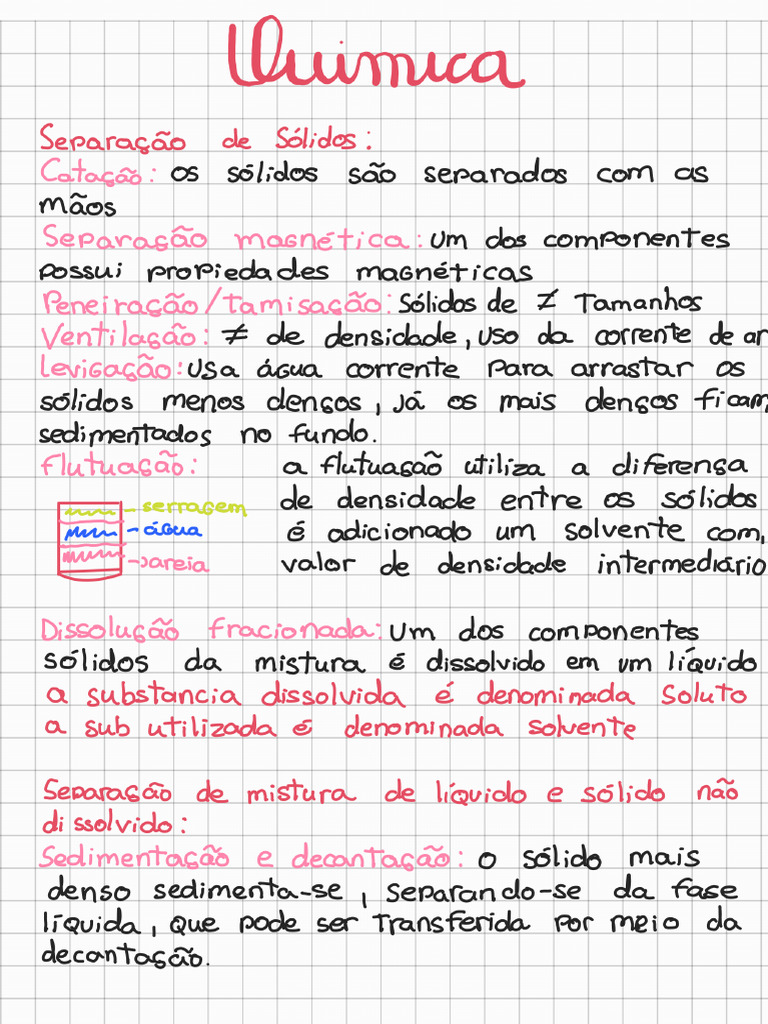 Química
Separação de Sólidos:
Catação: os sólidos são separados com as
mãos
Separação magnética: um dos componentes
possui propiedades magnéticas
Peneiração/tamisação: Sólidos de ≠ Tamanhos
Ventilação: ≠ de densidade, uso da corrente de ar
levigação: usa água corrente para arrastar os
sólidos menos densos, já os mais densos ficam
sedimentados no fundo.
flutuação: a flutuação utiliza a diferença
de densidade entre os sólidos
é adicionado um solvente com,
valor de densidade intermediário
serragem
água
areia
Dissolução fracionada: Um dos componentes
sólidos da mistura é dissolvido em um líquido
a substancia dissolvida é denominada soluto
a sub utilizada é denominada solvente
Separação de mistura de líquido e sólido não
dissolvido:
Sedimentação e decantação: o sólido mais
denso sedimenta-se, separando-se da fase
líquida, que pode ser transferida por meio da
decantação.